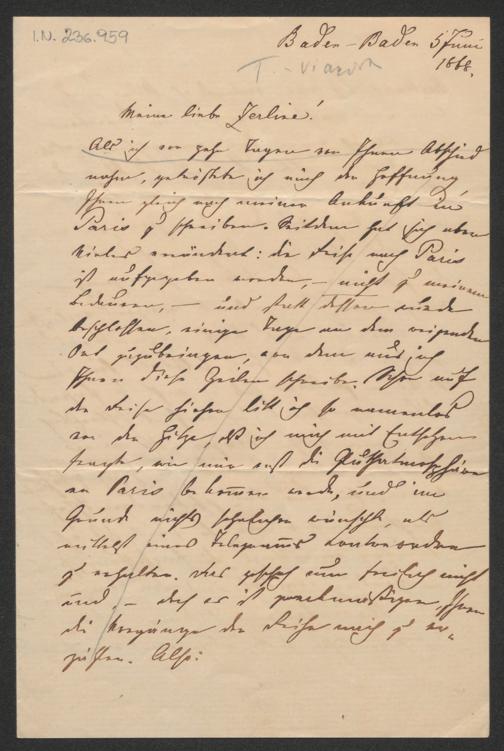 I.N. 236.959
Baden-Baden 5 Juni
1868.
T. - Viardot
Meine liebe Zerline!
Als ich vor zehn Tagen von Ihnen Abschied
nahm, getröstete ich mich der Hoffnung
Ihnen gleich nach meiner Ankunft in
Paris zu schreiben. Seitdem hat sich aber
Vieles verändert: die Reise nach Paris
ist aufgegeben worden, – nicht zu meinem
Bedauern, – und statt dessen wurde
beschlossen, einige Tage an dem reizenden
Ort zuzubringen, von dem aus ich
Ihnen diese Zeilen schreibe. Schon auf
der Reise hieher litt ich so namenlos
von der Hitze, daß ich mich mit Entsetzen
fragte, wie mir erst die
in Paris bekommen werde, und im
Grunde nichts sehnlicher wünschte, als
mittelst eines Telegramms Contreordre
zu erhalten. Das geschah nun freilich nicht
und, – doch es ist zweckmäßiger, Ihnen
die Vorgänge der Reihe nach zu er-
zählen. Also: